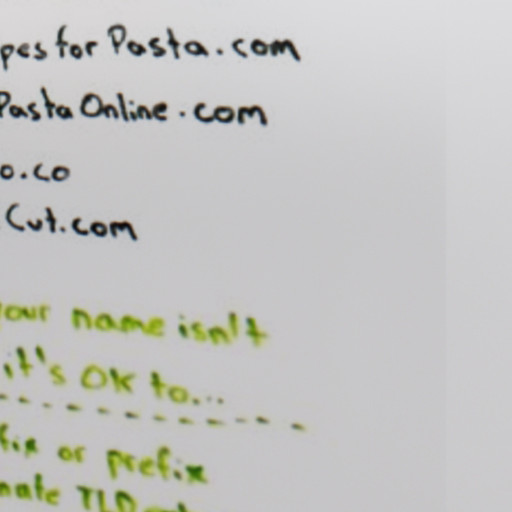 pesforPasta.com
PastaOnline.com
o.co
Cut.com
our name isn't
it's OK to...
fix or prefix
nate TLD